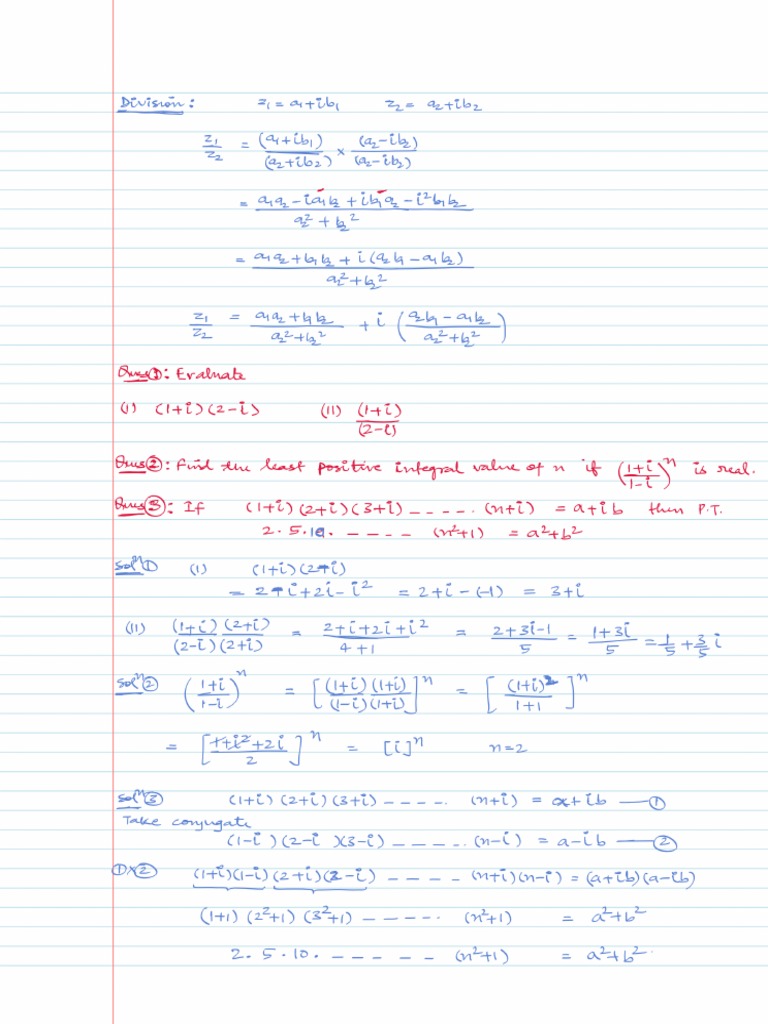 Division: z₁ = a₁+ib₁ z₂ = a₂+ib₂
z₁/z₂ = (a₁+ib₁)/(a₂+ib₂) × (a₂-ib₂)/(a₂-ib₂)
= (a₁a₂-ia₁b₂+ib₁a₂-i²b₁b₂)/(a₂²+b₂²)
= (a₁a₂+b₁b₂+i(a₂b₁-a₁b₂))/(a₂²+b₂²)
z₁/z₂ = (a₁a₂+b₁b₂)/(a₂²+b₂²) + i((a₂b₁-a₁b₂)/(a₂²+b₂²))
Ques①: Evaluate
(I) (1+i)(2-i) (II) (1+i)/(2-i)
Ques②: Find the least positive integral value of n if ((1+i)/(1-i))ⁿ is real.
Ques③: If (1+i)(2+i)(3+i)-----.(n+i) = a+ib then P.T.
2.5.10.----(n²+1) = a²+b²
Solⁿ① (I) (1+i)(2-i)
= 2-i+2i-i² = 2+i-(-1) = 3+i
(II) (1+i)(2+i)/(2-i)(2+i) = (2+i+2i+i²)/(4+1) = (2+3i-1)/5 = (1+3i)/5 = 1/5+3/5 i
Solⁿ② ((1+i)/(1-i))ⁿ = [(1+i)(1+i)/(1-i)(1+i)]ⁿ = [(1+i)²/(1+1)]ⁿ
= [(1+i²+2i)/2]ⁿ = [i]ⁿ n=2
Solⁿ③ (1+i)(2+i)(3+i)----.(n+i) = a+ib —①
Take conjugate
(1-i)(2-i)(3-i)-----.(n-i) = a-ib —②
①×② (1+i)(1-i)(2+i)(2-i)-----.(n+i)(n-i) = (a+ib)(a-ib)
(1+1)(2²+1)(3²+1)-----.(n²+1) = a²+b²
2.5.10.------(n²+1) = a²+b².